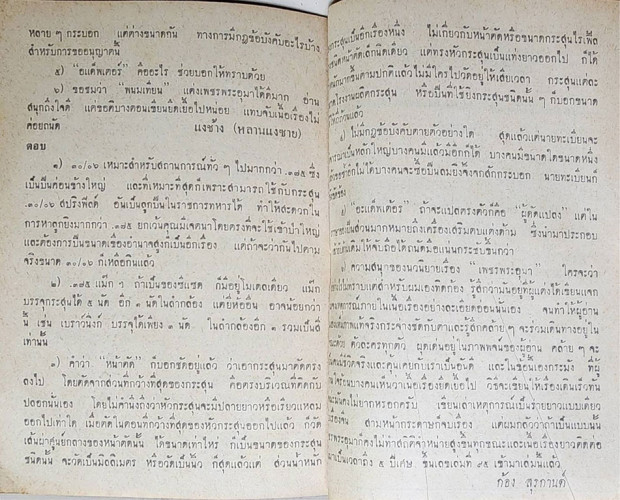 หลาย ๆ กระบอก แต่ต่างขนาดกัน ทางการมีกฎข้อบังคับอะไรบ้าง
สำหรับการขออนุญาตนี้
๕) "อแด็พเตอร์" คืออะไร ช่วยบอกให้ทราบด้วย
๖) ขอชมว่า "พนมเทียน" แต่งเพชรพระอุมาได้ดีมาก อ่าน
สนุกถึงใจดี แต่ขอติบางตอนเขียนยืดเยื้อไปหน่อย แทบจับเนื้อเรื่องไม่
ค่อยถนัด แงซ้าง (หลานแงซาย)
ตอบ
๑) ๓๐/๐๖ เหมาะสำหรับสถานการณ์ทั่ว ๆ ไปมากกว่า .๓๗๕ ซึ่ง
เป็นปืนค่อนข้างใหญ่ และที่เหมาะที่สุดก็เพราะสามารถใช้กับกระสุน
๓๐/๐๖ สปริงฟิลด์ อันเป็นลูกปืนในราชการทหารได้ ทำให้สะดวกใน
การหาลูกยิงมากกว่า .๓๗๕ ยกเว้นคุณมีเจตนาโดยตรงที่จะใช้เข้าป่าใหญ่
และต้องการปืนขนาดของอำนาจสูงก็เป็นอีกเรื่อง แต่ถ้าจะว่ากันไปตาม
จริงขนาด ๓๐/๐๖ ก็เหลือกินแล้ว
๒) .๓๗๕ แม็ก ๆ ถ้าเป็นของซีแซด ก็มีอยู่โมเดลเดียว แม็ก
บรรจุกระสุนได้ ๕ นัด อีก ๑ นัดในลำกล้อง แต่ยี่ห้ออื่น อาจน้อยกว่า
นี้ เช่น เบราว์นิ่งก็ บรรจุได้เพียง ๓ นัด ในลำกล้องอีก ๑ รวมเป็น๔
เท่านั้น
๓) คำว่า "หน้าตัด" ก็บอกชัดอยู่แล้ว ว่าเอากระสุนมาตัดตรง
ลงไป โดยตัดจากส่วนที่กว้างที่สุดของกระสุน คือตรงบริเวณที่ติดกับ
ปลอกนั่นเอง โดยไม่คำนึงถึงว่าหัวกระสุนจะมีปลายยาวหรือเรียวแหลม
ออกไปเท่าใด เมื่อตัดในตอนที่กว้างที่สุดของหัวกระสุนออกไปแล้ว ก็วัด
เส้นผ่าศูนย์กลางของหน้าตัดนั้น ได้ขนาดเท่าไหร่ ก็เป็นขนาดของกระสุน
ชนิดนั้น จะวัดเป็นมิลลิเมตร หรือวัดเป็นนิ้ว ก็สุดแล้วแต่ ส่วนน้ำหนัก
กระสุนเป็นอีกเรื่องหนึ่ง ไม่เกี่ยวกับหน้าตัดหรือขนาดกระสุน
หน้าตัดเล็กนิดเดียว แต่ทรงหัวเป็นแท่งยาวออกไป ก็ได้
ตามปกติแล้วไม่มีใครไปวัดอยู่ให้เสียเวลา กระสุนแต่ละ
โรงงานผลิตกระสุน หรือปืนที่ใช้ยิงกระสุนชนิดนั้น ๆ ก็บอกขนาด
อยู่แล้ว
ไม่มีกฎข้อบังคับตายตัวอย่างใด สุดแล้วแต่นายทะเบียนจะ
เป็นหลักใหญ่บางคนมีแล้วมีอีกก็ได้ บางคนมีขนาดใดขนาดหนึ่ง
ไม่ได้บางคนจะซื้อปืนลมยิงจิ้งจกสักกระบอก นายทะเบียนก็
"อะแด็พเต้อร์" ถ้าจะแปลตรงตัวก็คือ "ผู้ดัดแปลง" แต่ใน
ปืนส่วนมากหมายถึงเครื่องเสริมตบแต่งด้าม ซึ่งนำมาประกอบ
เดิมให้จับถือได้ถนัดมือแน่นกระชับขึ้นกว่า
ความสนุกของนวนิยายเรื่อง "เพชรพระอุมา" ใครจะว่า
แต่สำหรับผมเองคิดก้อง รู้สึกว่า
เหตุการณ์ภายในเนื้อเรื่องอย่างละเอียดออนนั่นเอง จนทำให้ผู้อ่าน
แท้จริงกระจ่างชัดกับตาและรู้สึกคล้าย ๆ จะร่วมเดินทางอยู่ใน
ด้วย ตัวละครทุกตัว ผุดเด่นอยู่ในภาพพจน์ของผู้อ่าน คล้าย ๆ จะ
มีชีวิตจริงและคุ้นเคยกับเราเป็นอันดี และในข้อนี้เอง
บางคนเห็นว่าเนื้อเรื่องยืดเยื้อไป วิธีจะเขียนให้เรื่องเดินเร็วขึ้น
ไม่ยากหรอกครับ เขียนเล่าเหตุการณ์เป็นรายยาวแบบเดียว
สามหน้ากระดาษก็จบเรื่อง แต่ผมกลัวว่าถ้าเป็นแบบนั้น
คงไม่ทำสถิติจำหน่ายสูงขึ้นทุกขณะและเนื้อเรื่องยาวติดต่อ
มาเป็นเวลาถึง ๕ ปีเศษ ขึ้นเลขเล่มที่ ๙๕ เข้ามาเล่มแล้ว
ก้อง สุรกานต์